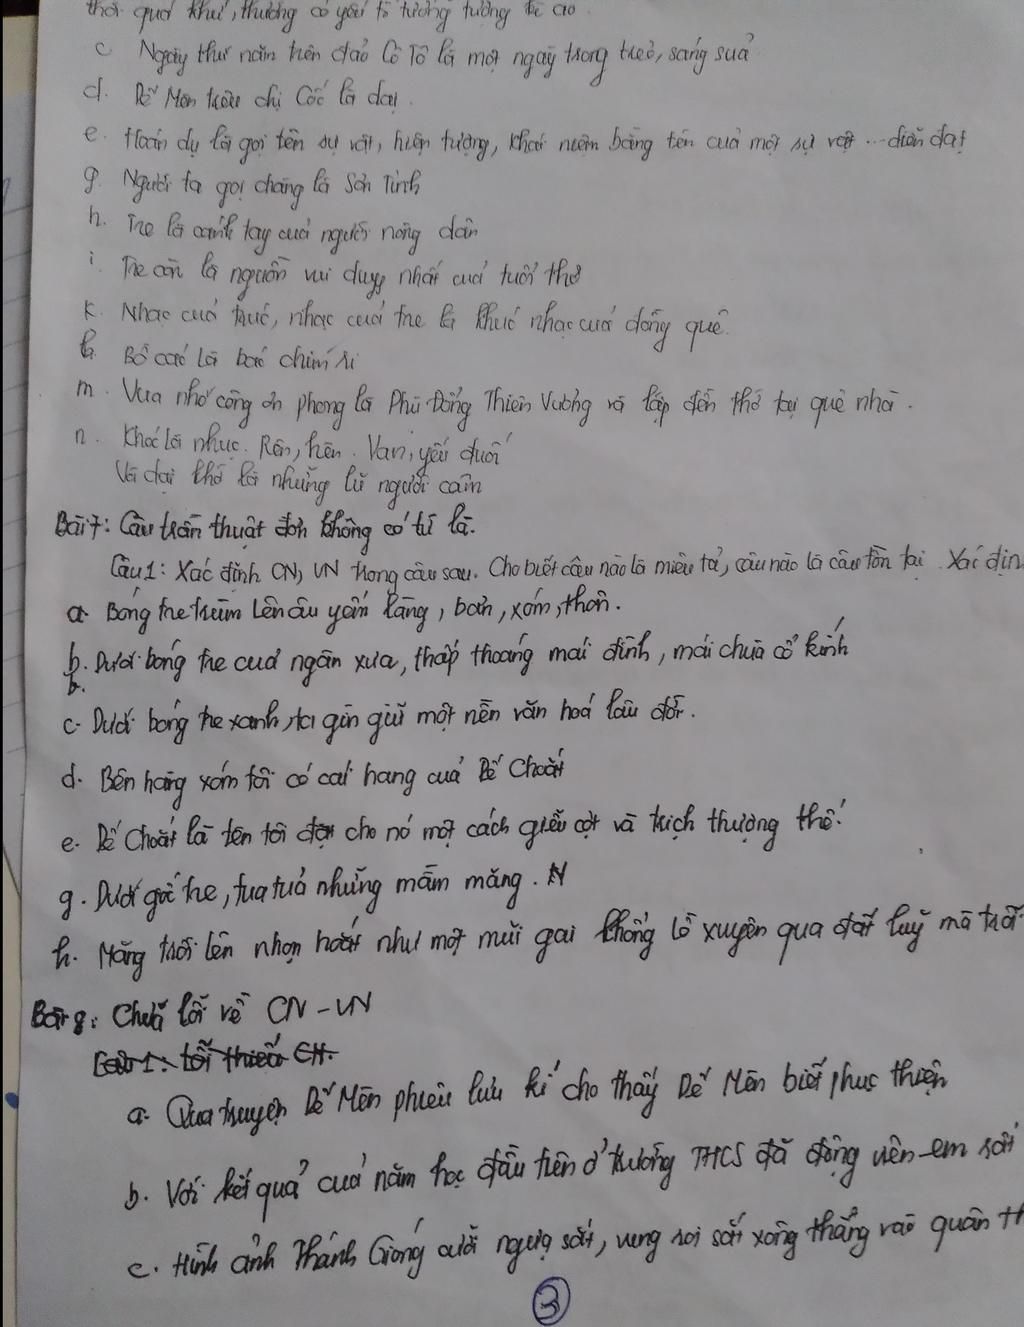 thời quá khứ, thường có yếu tố tưởng tượng kì ảo.
c Ngày thứ năm trên đảo Cô Tô là một ngày trong trẻo, sáng sủa
d. Dế Mèn trêu chị Cốc là dại.
e. Hoán dụ là gọi tên sự vật, hiện tượng, khái niệm bằng tên của một sự vật ... diễn đạt
g. Người ta gọi chàng là Sơn Tinh
h. Tre là cánh tay của người nông dân
i. Tre còn là nguồn vui duy nhất của tuổi thơ
k. Nhạc của trúc, nhạc của tre là khúc nhạc của đồng quê.
l. Bồ các là bác chim ri
m. Vua nhớ công ơn phong là Phù Đổng Thiên Vương và lập đền thờ tại quê nhà.
n. Khóc là nhục. Rên, hèn. Van, yếu đuối
Và dại khờ là những lũ người câm
Bài 7: Câu trần thuật đơn không có từ là.
Câu 1: Xác định CN, VN trong câu sau. Cho biết câu nào là miêu tả, câu nào là câu tồn tại. Xác địn
a. Bóng tre trùm lên âu yếm làng, bản, xóm, thôn.
b. Dưới bóng tre của ngàn xưa, thấp thoáng mái đình, mái chùa cổ kính
c. Dưới bóng tre xanh, ta gìn giữ một nền văn hoá lâu đời.
d. Bên hàng xóm tôi có cái hang của Dế Choắt
e. Dế Choắt là tên tôi đặt cho nó một cách giễu cợt và trịch thượng thế.
g. Dưới gốc tre, tua tủa những mầm măng.
h. Măng trồi lên nhọn hoắt như một mũi gai khổng lồ xuyên qua đất luỹ mà trỗi
Bài 8: Chữa lỗi về CN - VN
Câu 1: Lỗi thiếu CN.
a. Qua truyện Dế Mèn phiêu lưu kí cho thấy Dế Mèn biết phục thiện
b. Với kết quả của năm học đầu tiên ở trường THCS đã động viên em rất
c. Hình ảnh Thánh Gióng cưỡi ngựa sắt, vung roi sắt xông thẳng vào quân th
3